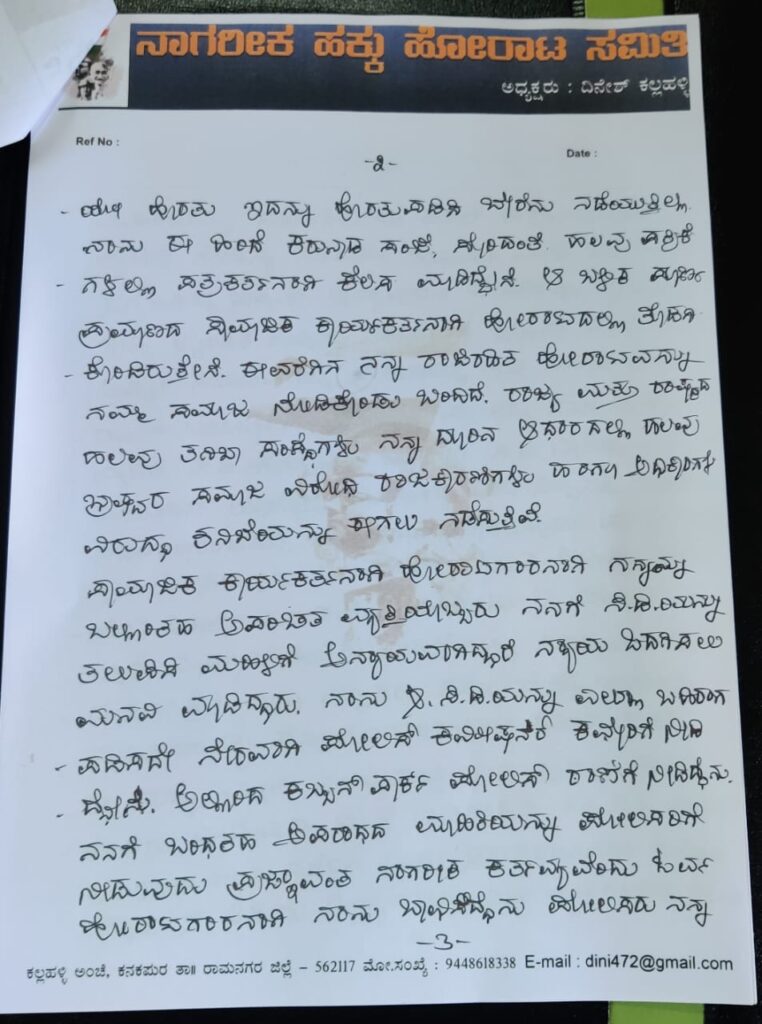 ನಾಗರೀಕ ಹಕ್ಕು ಹೋರಾಟ ಸಮಿತಿ
ಅಧ್ಯಕ್ಷರು : ದಿನೇಶ್ ಕಲ್ಲಹಳ್ಳಿ
Ref No :
Date :
-೨-
ಹೊರತು ಇದನ್ನು ಹೊರತುಪಡಿಸಿ ಬೇರೇನು ನಡೆಯುತ್ತಿಲ್ಲ
ನಾನು ಈ ಹಿಂದೆ ಕರುನಾಡ ಸಂಜೆ, ಸೇರಿದಂತೆ ಹಲವು ಪತ್ರಿಕೆ
- ಗಳಲ್ಲಿ ಪತ್ರಕರ್ತನಾಗಿ ಕೆಲಸ ಮಾಡಿದ್ದೇನೆ. ಆ ಬಳಿಕ ಪೂರ್ಣ
ಪ್ರಮಾಣದ ಸಾಮಾಜಿಕ ಕಾರ್ಯಕರ್ತನಾಗಿ ಹೋರಾಟದಲ್ಲಿ ತೊಡಗಿ
- ಕೊಂಡಿರುತ್ತೇನೆ. ಈವರೆಗಿನ ನನ್ನ ರಾಜಿರಹಿತ ಹೋರಾಟವನ್ನು
ನಮ್ಮ ಸಮಾಜ ನೋಡಿಕೊಂಡು ಬಂದಿದೆ. ರಾಜ್ಯ ಮತ್ತು ರಾಷ್ಟ್ರದ
ಹಲವು ತನಿಖಾ ಸಂಸ್ಥೆಗಳು ನನ್ನ ದೂರಿನ ಆಧಾರದಲ್ಲಿ ಹಲವು
ಭ್ರಷ್ಟರ ಸಮಾಜ ವಿರೋಧಿ ರಾಜಕಾರಣಿಗಳು ಹಾಗೂ ಅಧಿಕಾರಿಗಳ
ವಿರುದ್ಧ ತನಿಖೆಯನ್ನು ಈಗಲು ನಡೆಸುತ್ತಿವೆ.
ಸಾಮಾಜಿಕ ಕಾರ್ಯಕರ್ತನಾಗಿ ಹೋರಾಟಗಾರನಾಗಿ ನನ್ನನ್ನು
ಬಲ್ಲಂತಹ ಅಪರಿಚಿತ ವ್ಯಕ್ತಿಯೊಬ್ಬರು ನನಗೆ ಸಿ.ಡಿ.ಯನ್ನು
ತಲುಪಿಸಿ ಮಹಿಳೆಗೆ ಅನ್ಯಾಯವಾಗಿದ್ದು ನ್ಯಾಯ ಒದಗಿಸಲು
ಮನವಿ ಮಾಡಿದ್ದರು. ನಾನು ಆ ಸಿ.ಡಿ.ಯನ್ನು ಎಲ್ಲೂ ಬಹಿರಂಗ
- ಪಡಿಸದೇ ನೇರವಾಗಿ ಪೋಲಿಸ್ ಕಮೀಷನರ್ ಕಚೇರಿಗೆ ನೀಡಿ
- ದ್ದೇನೆ. ಅಲ್ಲಿಂದ ಕಬ್ಬನ್ ಪಾರ್ಕ್ ಪೋಲಿಸ್ ಠಾಣೆಗೆ ನೀಡಿದ್ದೆನು.
ನನಗೆ ಬಂದಂತಹ ಅಪರಾಧದ ಮಾಹಿತಿಯನ್ನು ಪೋಲಿಸರಿಗೆ
ನೀಡುವುದು ಪ್ರಜ್ಞಾವಂತ ನಾಗರೀಕ ಕರ್ತವ್ಯವೆಂದು ಓರ್ವ
ಹೋರಾಟಗಾರನಾಗಿ ನಾನು ಭಾವಿಸಿದ್ದೆನು ಪೋಲಿಸರು ನನ್ನ
-3-
ಕಲ್ಲಹಳ್ಳಿ ಅಂಚೆ, ಕನಕಪುರ ತಾ॥ ರಾಮನಗರ ಜಿಲ್ಲೆ – 562117 ಮೋ.ಸಂಖ್ಯೆ : 9448618338 E-mail : dini472@gmail.com